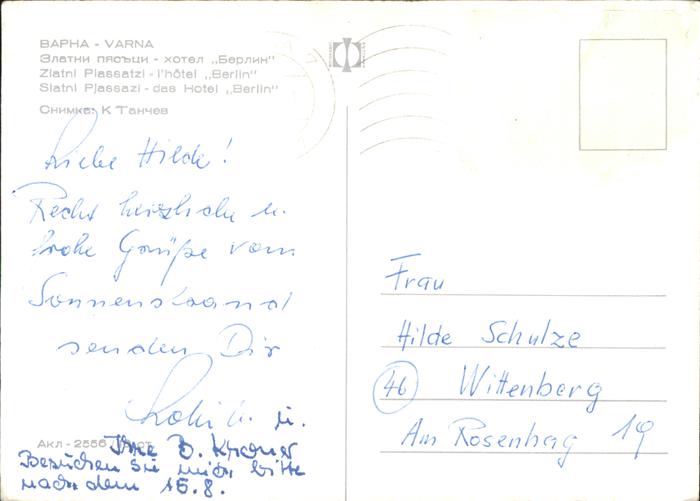 ВАРНА - VARNA
Златни пясъци - хотел „Берлин"
Zlatni Piassatzi - l'hôtel „Berlin"
Slatni Pjassazi - das Hotel „Berlin"
Снимка: К. Танчев
Liebe Hilde!
Recht herzliche u.
frohe Grüße vom
Sonnenstrand
senden Dir
u.
Ihre B.
Besuchen Sie mich bitte
nach dem 15.8.
Акл - 2556
Frau
Hilde Schulze
46 Wittenberg
Am Rosenhag 19